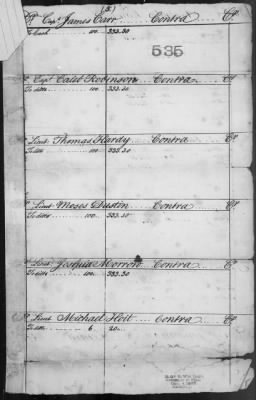 (5)
Dr. Capt. James Carr Contra Cr.
To Cash 100. 333.30
535
Capt. Caleb Robinson Contra Cr.
To ditto 100. 333.30
Lieut. Thomas Hardy Contra Cr.
To ditto 100. 333.30
Lieut. Moses Dustin Contra Cr.
To ditto 100. 333.30
Lieut. Joseph Morrow Contra Cr.
To ditto 100. 333.30
Lieut. Michael Hoit Contra Cr.
To ditto 6 20